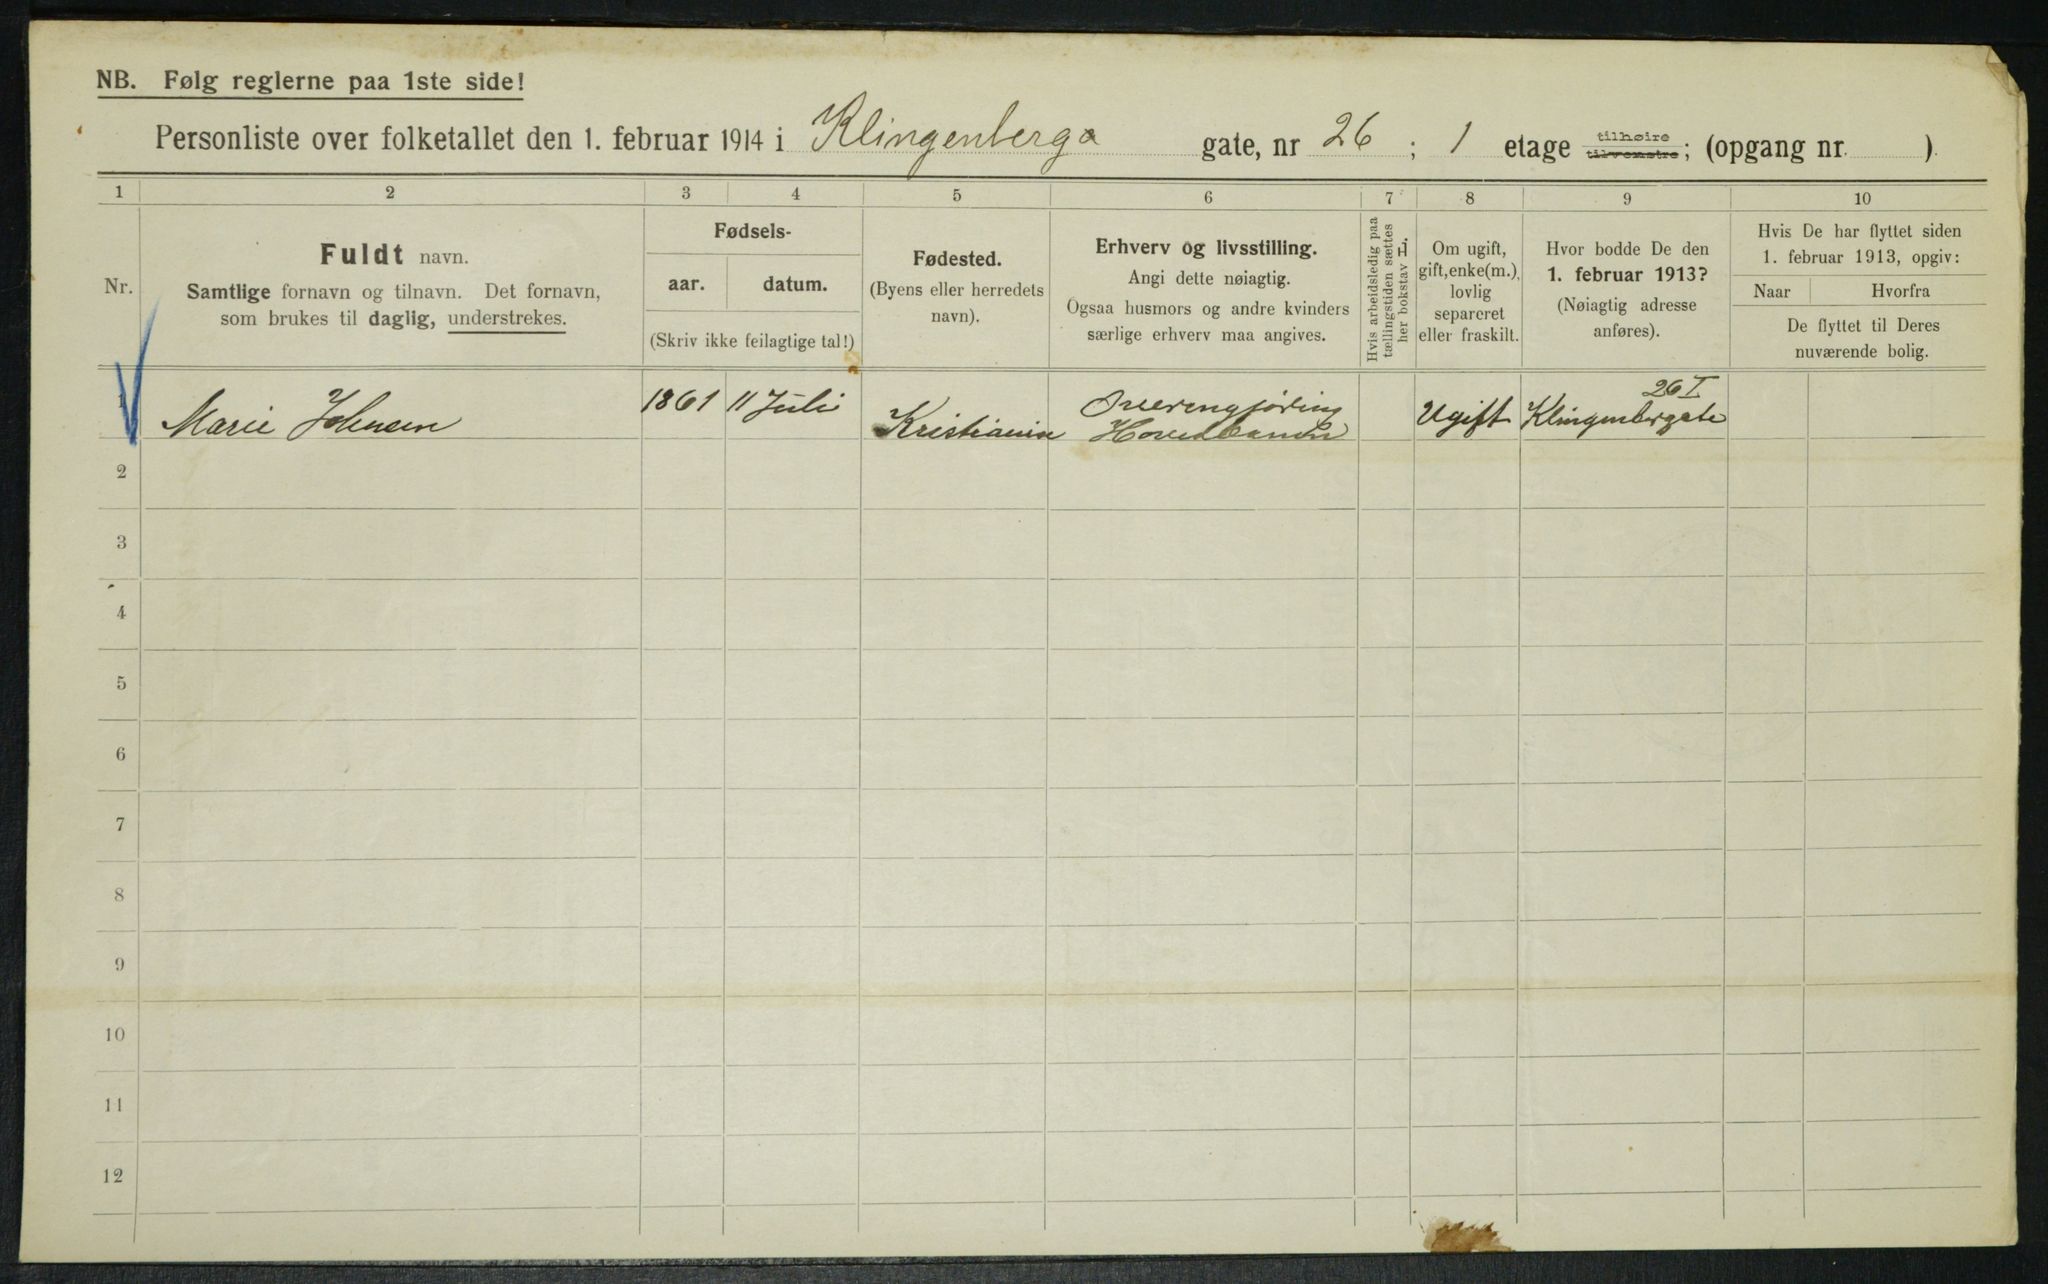 NB. Følg reglerne paa 1ste side!
Personliste over folketallet den 1. februar 1914 i Klingenberga gate, nr 26 ; 1 etage tilhøire tilvenstre; (opgang nr. )
1 2 3 4 5 6 7 8 9 10
Nr.
Fuldt navn.
Samtlige fornavn og tilnavn. Det fornavn,
som brukes til daglig, understrekes.
Fødsels-
aar. datum.
(Skriv ikke feilagtige tal!)
Fødested.
(Byens eller herredets
navn).
Erhverv og livsstilling.
Angi dette nøiagtig.
Ogsaa husmors og andre kvinders
særlige erhverv maa angives.
Hvis arbeidsledig paa
tællingstiden sættes
her bokstav L
Om ugift,
gift, enke(m.),
lovlig
separeret
eller fraskilt.
Hvor bodde De den
1. februar 1913?
(Nøiagtig adresse
anføres).
Hvis De har flyttet siden
1. februar 1913, opgiv:
Naar Hvorfra
De flyttet til Deres
nuværende bolig.
26 I
1 Marie Johnsen 1861 11 Juli Kristiania Ovverengjøring Ugift Klingenbergate
Hovedbanen
2
3
4
5
6
7
8
9
10
11
12